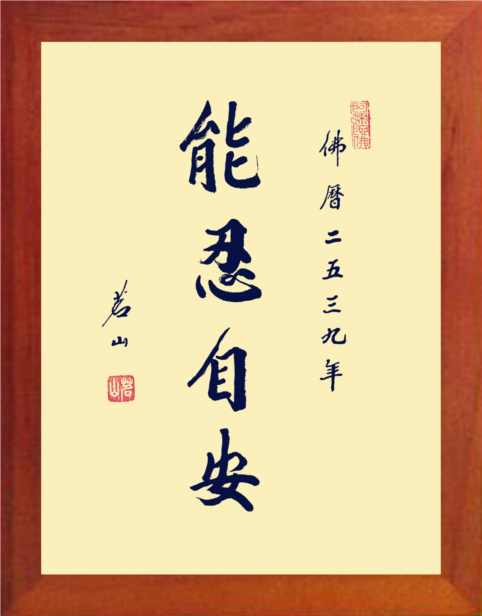 佛曆二五三九年
能忍自安
茗山
茗山